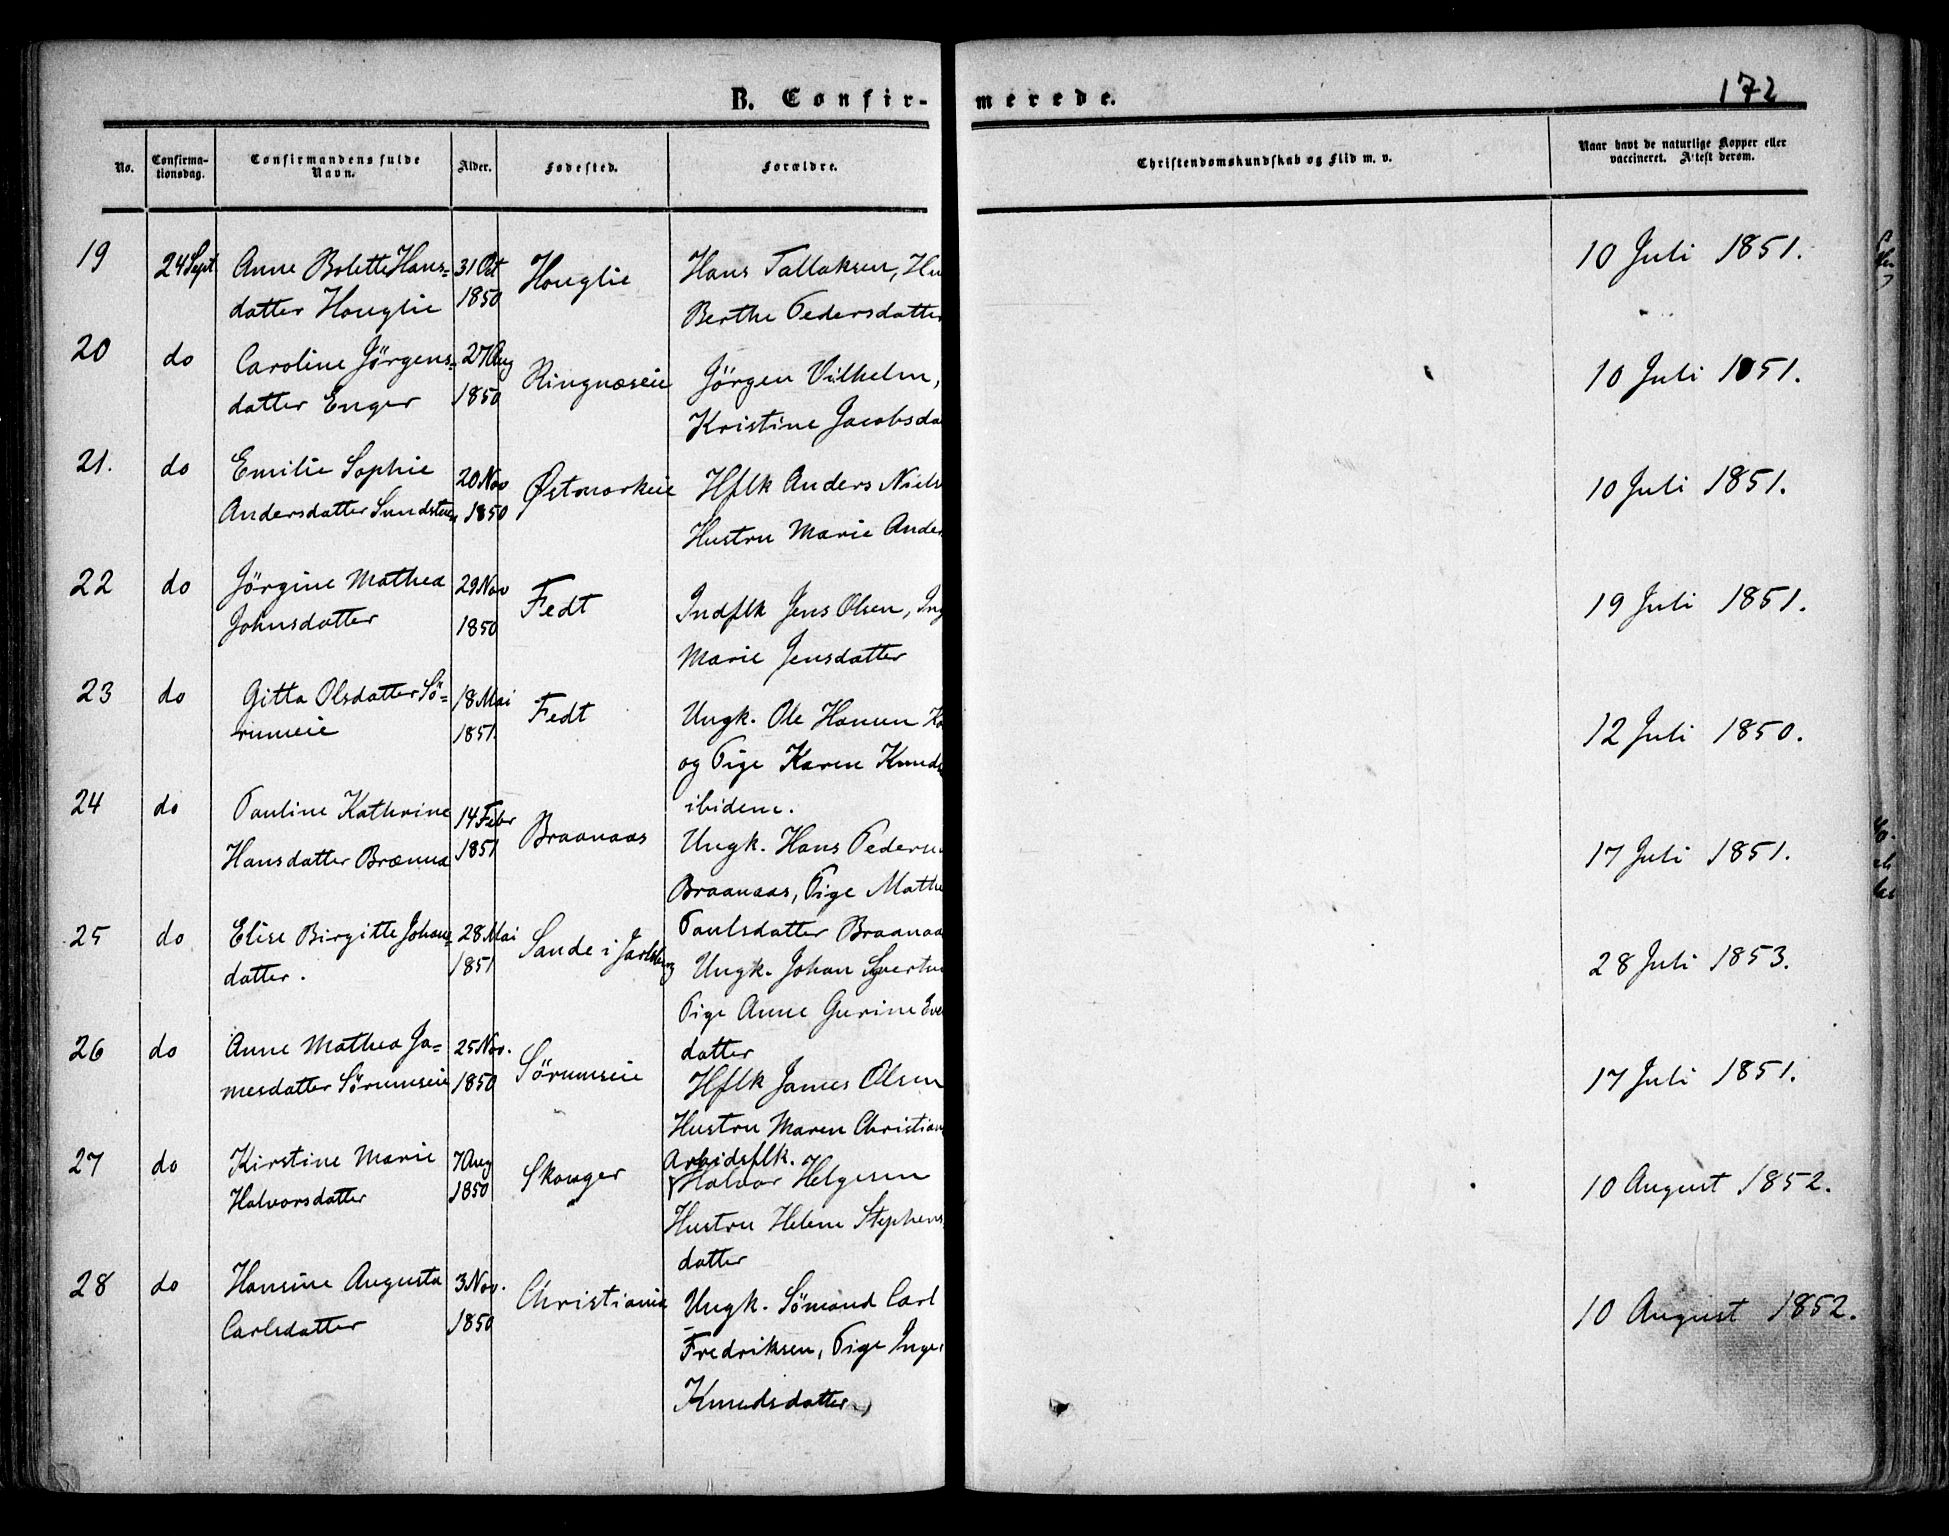 B. Confir- merede.
172
No.
Confirma-
tionsdag.
Confirmandens fulde
Navn.
Alder.
Fødested.
Forældre.
Christendomskundskab og Flid m. v.
Naar havt de naturlige Kopper eller
vaccineret. Attest derom.
19 24 Sept Anne Bolette Hans- 31 Oct Houglie Hans Tallaksen, Hu 10 Juli 1851.
datter Houglie 1850 Berthe Pedersdatter
20 do Caroline Jørgens- 27 Aug Ringnæseie Jörgen Vilhelm, 10 Juli 1851.
datter Enger 1850 Kristine Jacobsda
21. do Emilie Sophie 20 Nov Østmarkeie Hflk Anders Niels 10 Juli 1851.
Andersdatter Sundsteen 1850 Hustru Marie Ander
22 do Jörgine Mathea 29 Nov Fedt Indflk Jens Olsen, Ing 19 Juli 1851.
Johnsdatter 1850 Marie Jensdatter
23 do Gitta Olsdatter Sö- 18 Mai Fedt Ungk. Ole Hansen 12 Juli 1850.
rumeie 1851. og Pige Karen Knuds
ibidem.
24 do Pauline Kathrine 14 Febr Braanaas Ungk. Hans Peders 17 Juli 1851.
Hansdatter Brænna 1851 Braanaas, Pige Mathe
Paulsdatter Braanaa
25 do Elise Birgitte Johans- 28 Mai Sande i Jarlsberg Ungk. Johan Syverts 28 Juli 1853.
datter. 1851 Pige Anne Gurine Eve
datter
26 do Anne Mathea Ja- 25 Nov. Sörumseie Hflk James Olsen 17 Juli 1851.
mesdatter Sörumseie 1850 Hustru Maren Christian
27 do Kirstine Marie 7 Aug Skouger Arbidsflk. 10 August 1852.
Halvorsdatter 1850 Halvor Helgesen
Hustru Helene Stephens-
datter
28 do Hansine Augusta 3 Nov. Christiania Ungk. Sömand Carl 10 August 1852.
Carlsdatter 1850 Fredriksen, Pige Inge
Knudsdatter